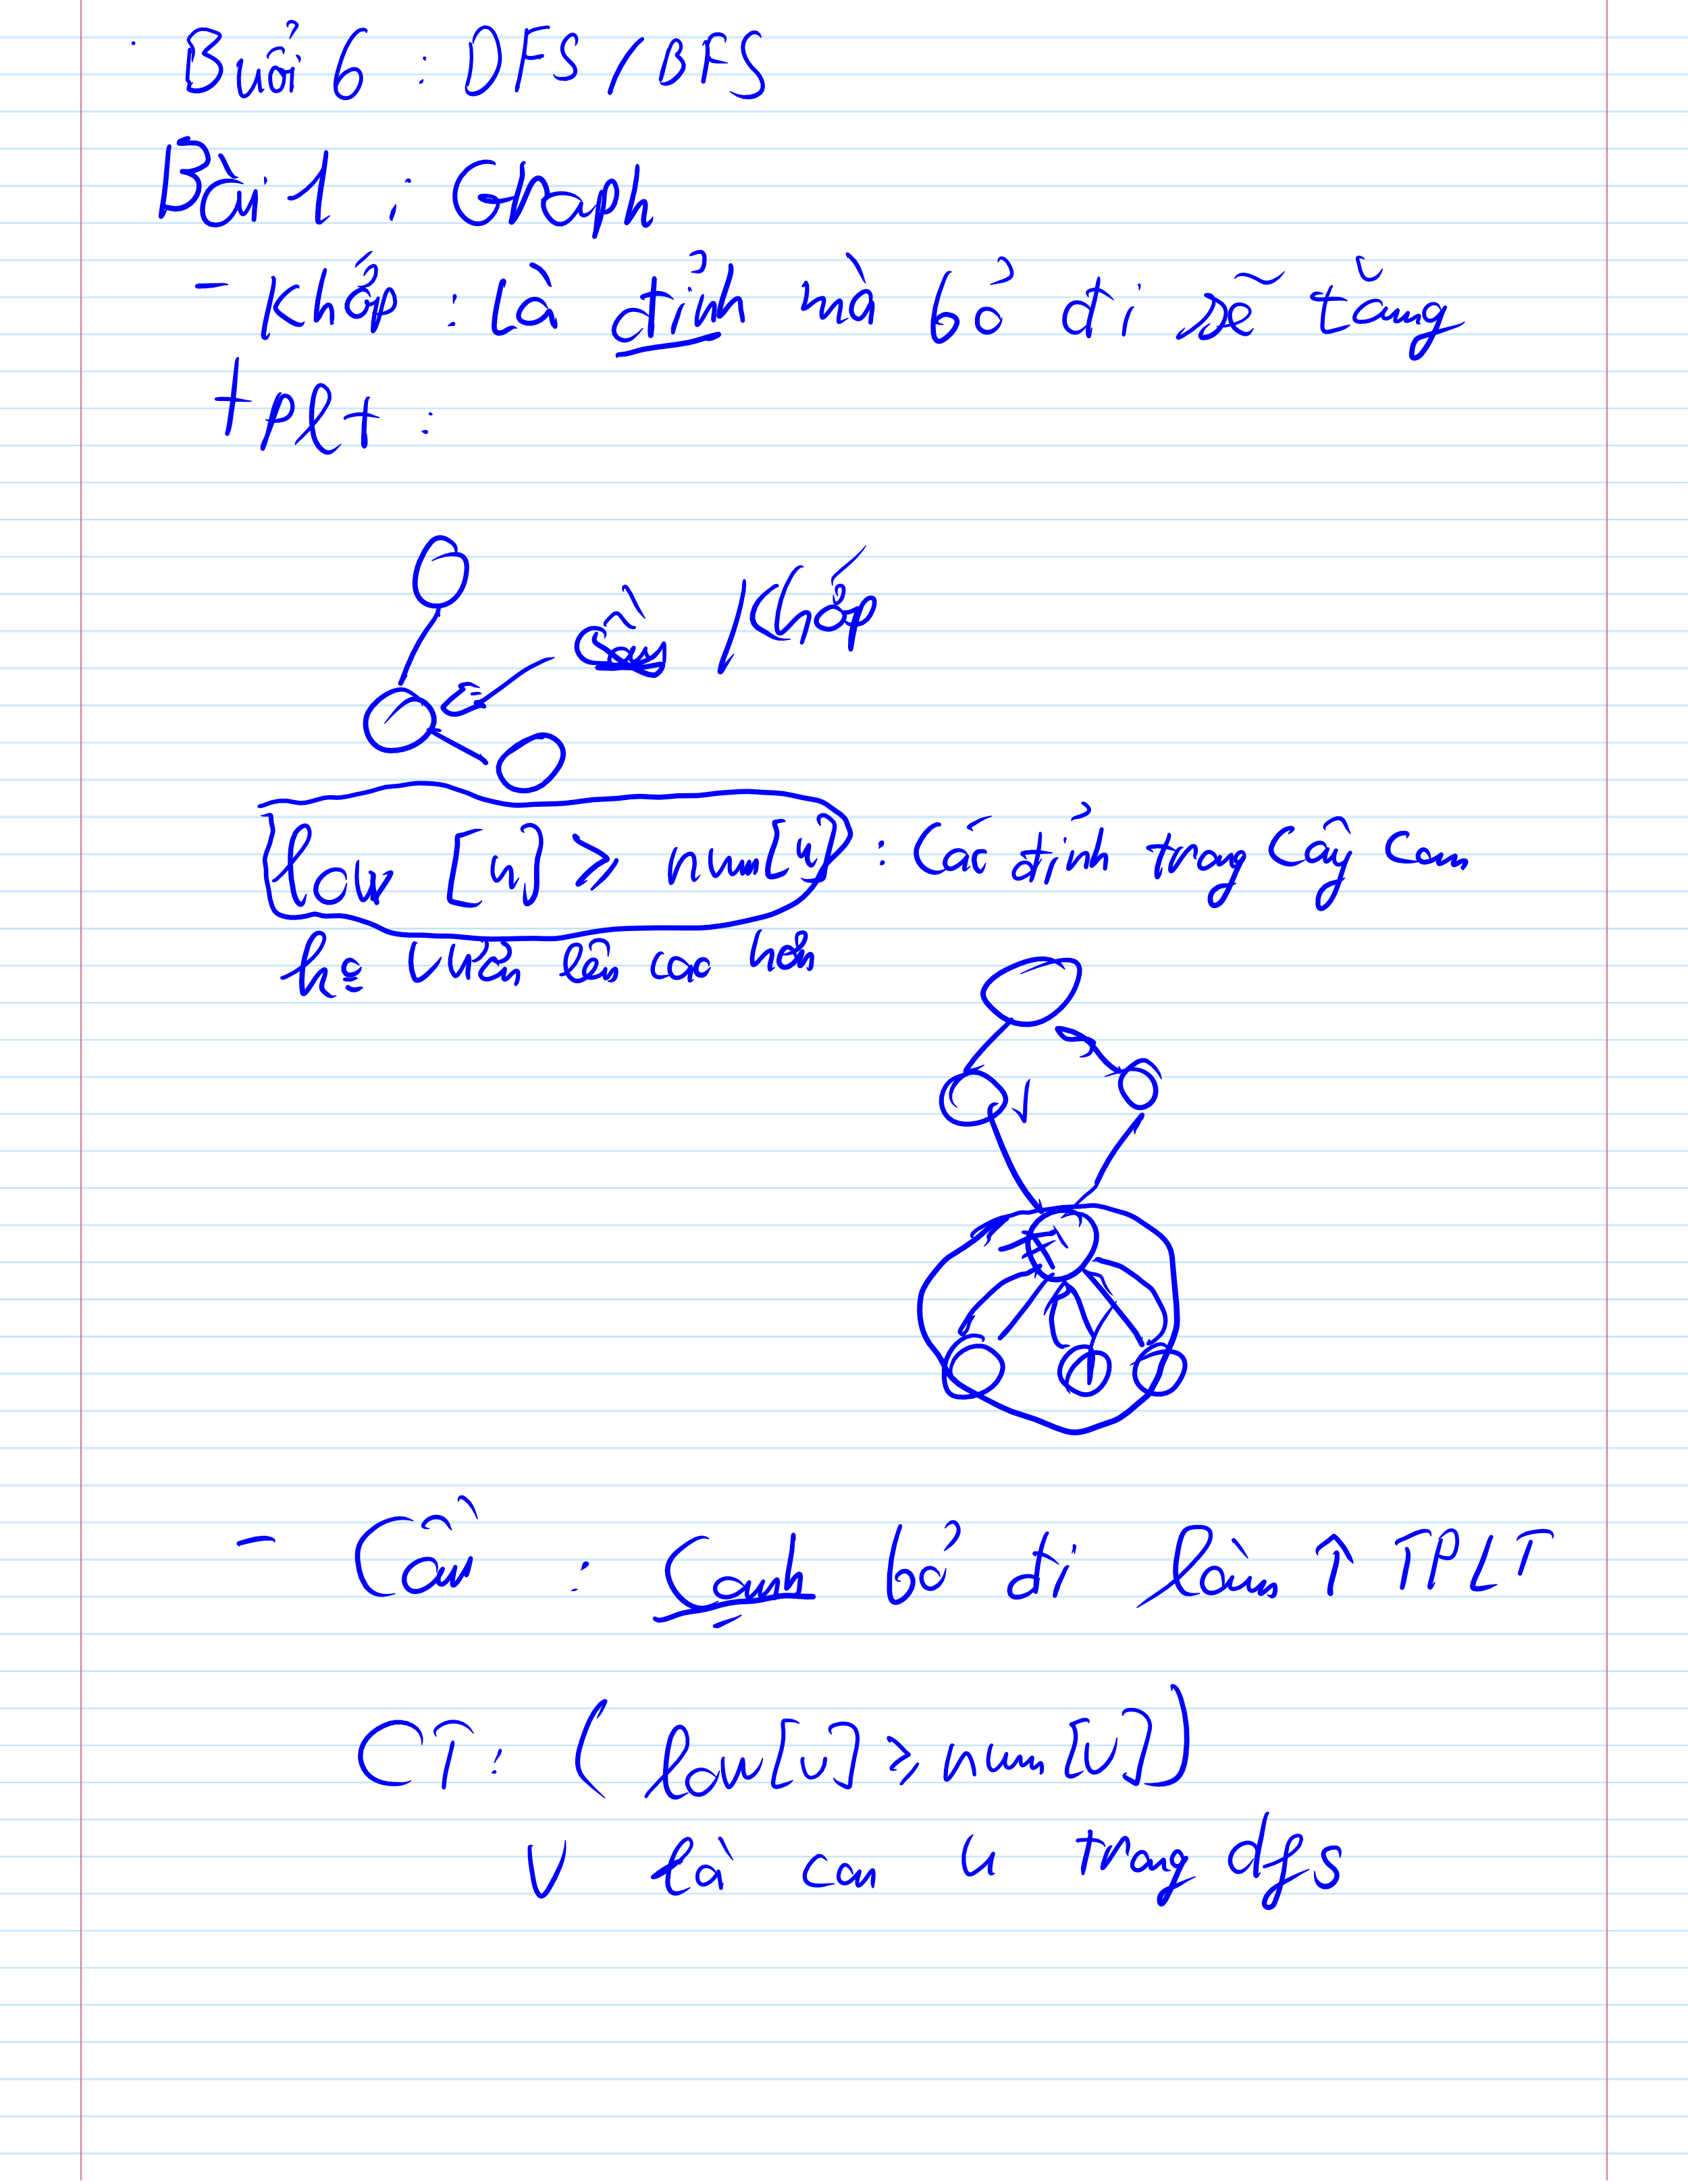 Buổi 6 : DFS / BFS
Bài 1 : Graph
- Khớp : là đỉnh mà bỏ đi sẽ tăng
tplt :
Khớp
low [u] ≥ num[u] : Các đỉnh trong cây con
ko vươn lên cao hơn
- Cầu : Cạnh bỏ đi làm ↑ TPLT
CT: ( low[v] ≥ num[v] )
v là con u trong dfs